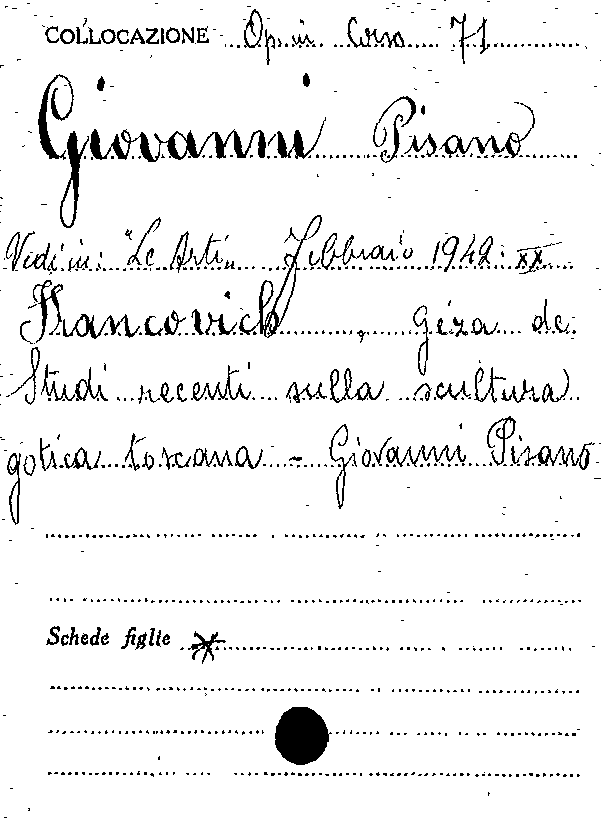 COLLOCAZIONE Op. in Corso 71
Giovanni Pisano
Vedi in: "Le Arti" Febbraio 1942. XX
Francovich, Géza de
Studi recenti sulla scultura
gotica toscana - Giovanni Pisano
Schede figlie *